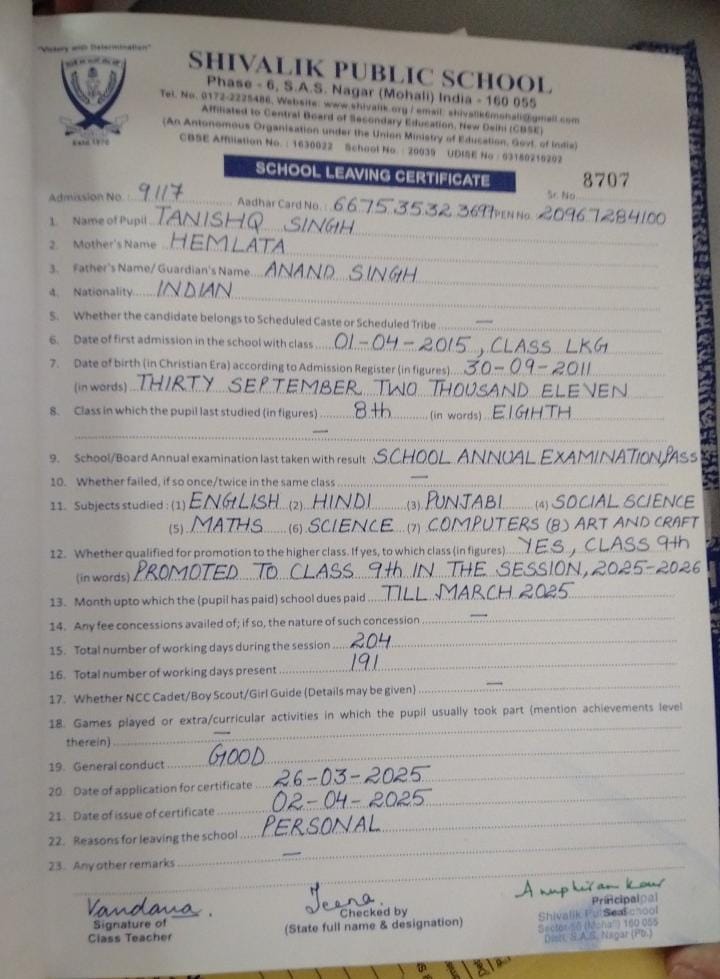 "Victory with Determination"
Estd.1970
SHIVALIK PUBLIC SCHOOL
Phase - 6, S.A.S. Nagar (Mohali) India - 160 055
Tel. No. 0172-2225486, Website: www.shivalik.org / email: shivalik6mohali@gmail.com
Affiliated to Central Board of Secondary Education, New Delhi (CBSE)
(An Autonomous Organisation under the Union Ministry of Education, Govt. of India)
CBSE Affiliation No. : 1630022 School No. : 20039 UDISE No : 03180210202
SCHOOL LEAVING CERTIFICATE
Sr. No. 8707
Admission No. 9117 Aadhar Card No. : 667535323699 PEN No. 20967284100
1. Name of Pupil TANISHQ SINGH
2. Mother's Name HEMLATA
3. Father's Name/ Guardian's Name ANAND SINGH
4. Nationality INDIAN
5. Whether the candidate belongs to Scheduled Caste or Scheduled Tribe —
6. Date of first admission in the school with class 01-04-2015, CLASS LKG
7. Date of birth (in Christian Era) according to Admission Register (in figures) 30-09-2011
(in words) THIRTY SEPTEMBER TWO THOUSAND ELEVEN
8. Class in which the pupil last studied (in figures) 8th (in words) EIGHTH
—
9. School/Board Annual examination last taken with result SCHOOL ANNUAL EXAMINATION, PASS
10. Whether failed, if so once/twice in the same class —
11. Subjects studied : (1) ENGLISH (2) HINDI (3) PUNJABI (4) SOCIAL SCIENCE
(5) MATHS (6) SCIENCE (7) COMPUTERS (8) ART AND CRAFT
12. Whether qualified for promotion to the higher class. If yes, to which class (in figures) YES, CLASS 9th
(in words) PROMOTED TO CLASS 9th IN THE SESSION, 2025-2026
13. Month upto which the (pupil has paid) school dues paid TILL MARCH 2025
14. Any fee concessions availed of; if so, the nature of such concession —
15. Total number of working days during the session 204
16. Total number of working days present 191
17. Whether NCC Cadet/Boy Scout/Girl Guide (Details may be given) —
18. Games played or extra/curricular activities in which the pupil usually took part (mention achievements level
therein) —
19. General conduct GOOD
20. Date of application for certificate 26-03-2025
21. Date of issue of certificate 02-04-2025
22. Reasons for leaving the school PERSONAL
23. Any other remarks —
Vandana. Teena. Anuphiran Kaur
Signature of
Class Teacher
Checked by
(State full name & designation)
Principal
Seal
Principal
Shivalik Public School
Sector-56 (Mohali) 160 055
Distt. S.A.S. Nagar (Pb.)